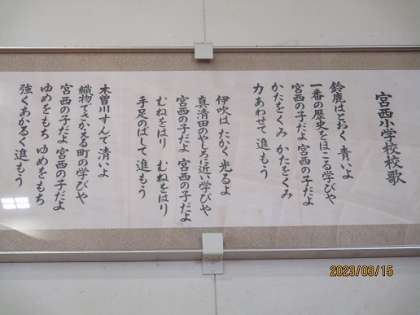 宮西小学校校歌
鈴鹿はとおく 青いよ
一番の歴史をほこる学びや
宮西の子だよ 宮西の子だよ
かたをくみ かたをくみ
力あわせて 進もう
伊吹は たかく 光るよ
真清田のやしろに近い学びや
宮西の子だよ 宮西の子だよ
むねをはり むねをはり
手足のばして 進もう
木曽川すんで 清いよ
織物でさかえる町の学びや
宮西の子だよ 宮西の子だよ
ゆめをもち ゆめをもち
強くあかるく 進もう
2023/03/15